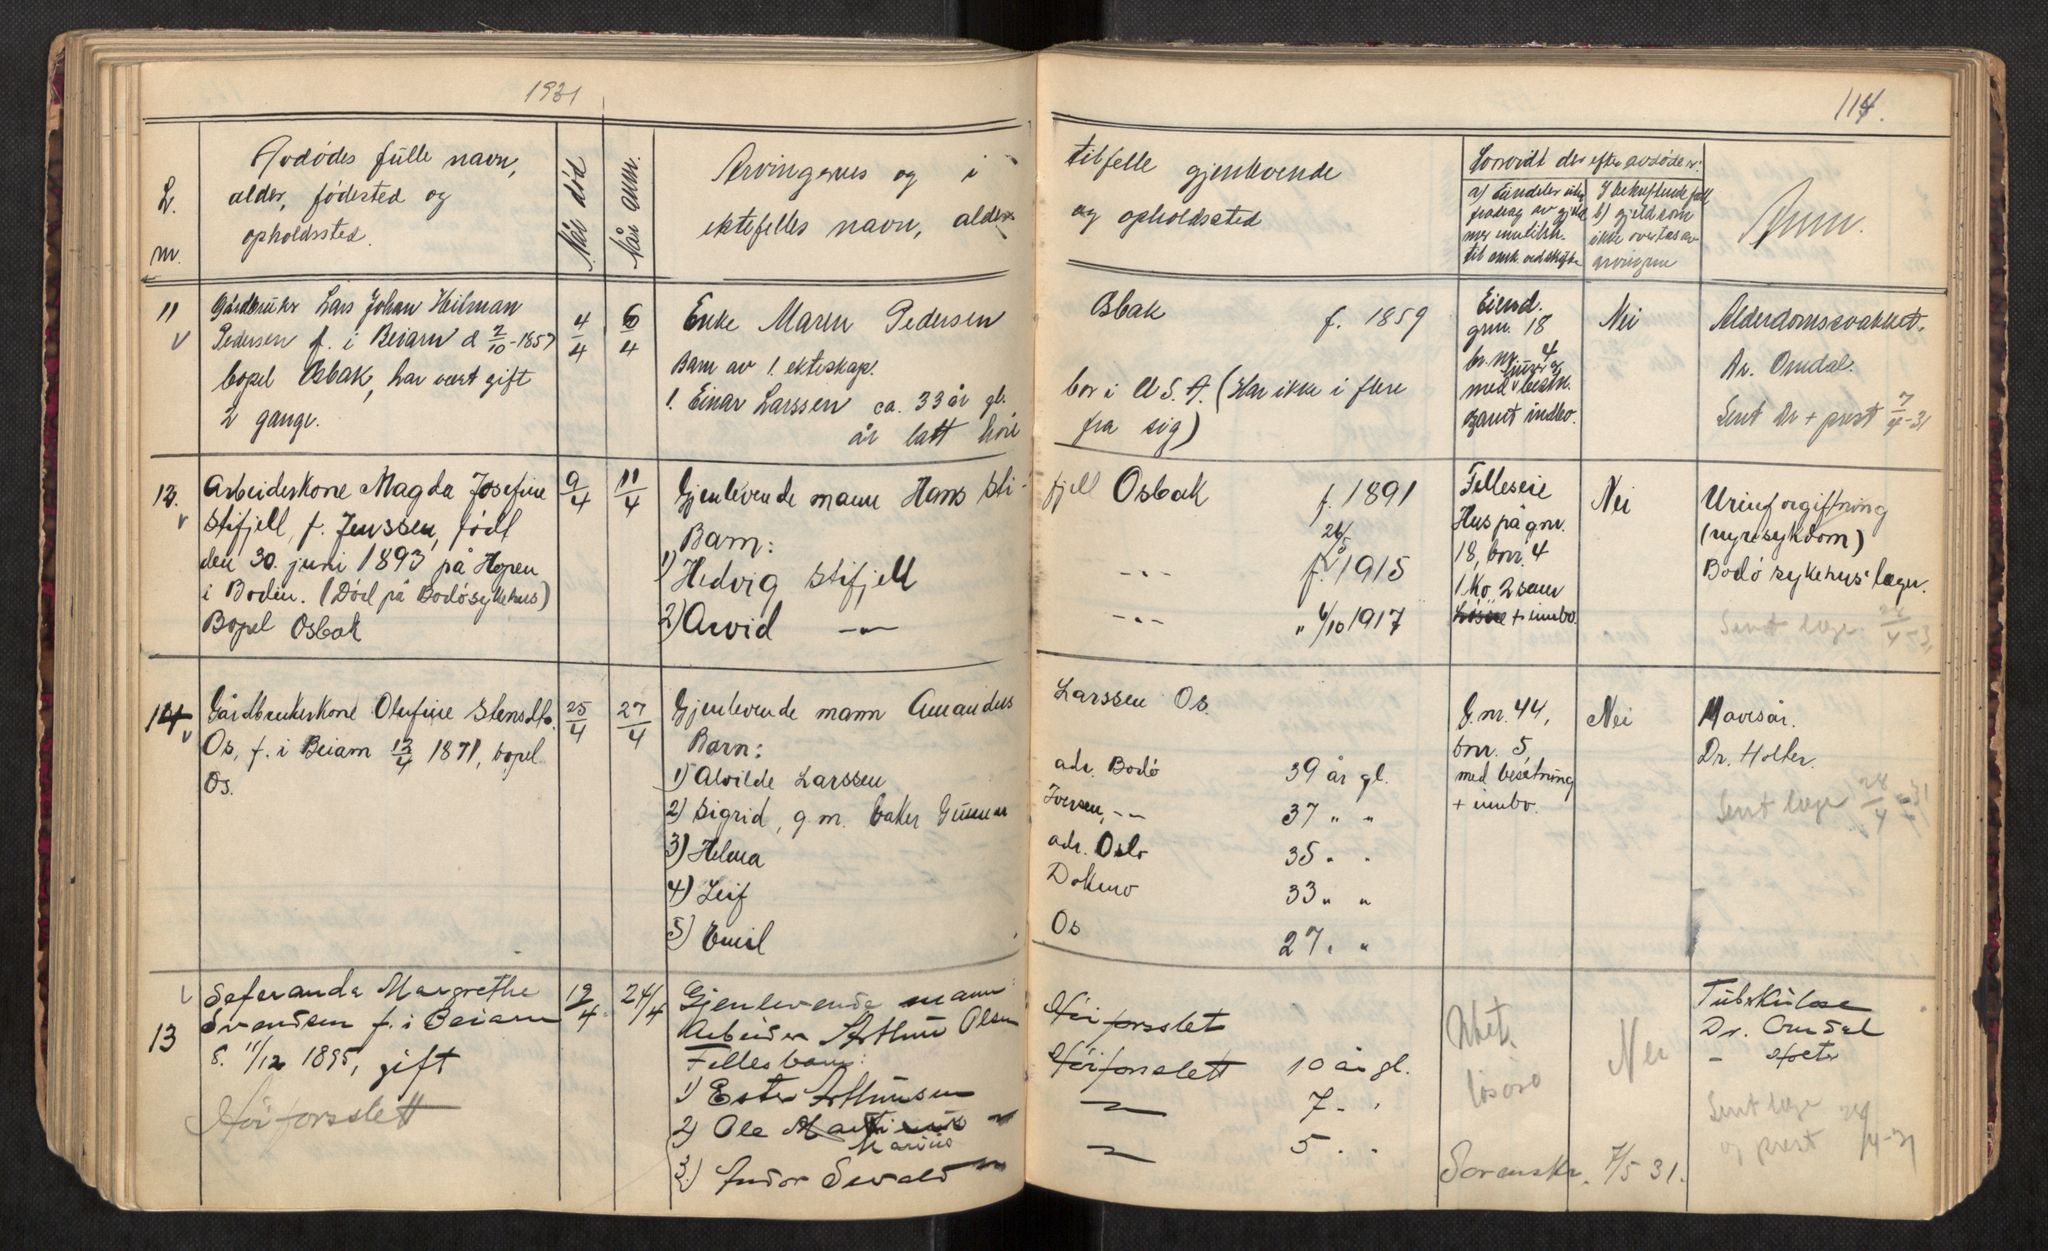 1931
114.
L. m.
Avdødes fulle navn,
alder, fødested og
opholdssted.
Når død
Når anm.
Arvingenes og i
ektefelles navn, alder
tilfelle gjenlevende
og opholdssted
Hvorvidt der efter avdøde er:
a) Eiendeler uten
fradrag av gjeld
b) gjeld som
ikke overtas av
arvingene
Anm.
11
Gårdbruker Lars Johan Hilman
Pedersen f. i Beiarn d 2/10-1857
bopel Osbak, har vært gift
2 gange.
4/4
6/4
Enke Maren Pedersen
Barn av 1. ekteskap.
1. Einar Larssen ca. 33 år gl.
år latt høre
Osbak f. 1859
bor i U.S.A. (Har ikke i flere
fra sig)
Eiend.
grn. 18
br. nr. 4
med besetn.
samt indbo.
Nei
Alderdomssvakhet.
Dr. Omdal.
Sent Dr + prest 7/4-31
12.
Arbeiderkone Magda Josefine
Stifjell, f. Jenssen, født
den 30. juni 1893 på Hopen
i Bodin. (Død på Bodø sykehus)
Bopel Osbak
9/4
11/4
Gjenlevende mann Hans Sti-
Barn:
1) Hedvig Stifjell
2) Arvid —"—
fjell Osbak f. 1891
- " - f. 26/5 1915
- " - " 4/10 1917
Felleseie
Hus på gnr.
18, bnr. 4
1 Ko, 2 sau
Løsøre + innbo
Nei
Urinforgiftning
(nyresykdom)
Bodø sykehus' læge.
Sent læge 24/4-31
14
Gårdbrukerkone Olufine Stensdtr.
Os, f. i Beiarn 13/4 1871, bopel
Os.
25/4
27/4
Gjenlevende mann Amandus
Barn:
1) Alvilde Larssen
2) Sigrid, g.m. baker Gunnar
3) Helma
4) Leif
5) Emil
Larssen Os.
adr. Bodø 39 år gl.
Iversen, -"- 37 " "
adr. Oslo 35 " "
Dokmo 33 " "
Os 27 " "
G.nr. 44,
bnr. 5,
med besetning
+ innbo.
Nei
Mavesår.
Dr. Holter.
Sent læge 28/4-31
13
Seferanda Margrethe
Svendsen f. i Beiarn
d. 11/12 1895, gift
Høiforsslett
19/4
24/4
Gjenlevende mann:
Arbeider Arthur Olsen
Fellesbarn:
1) Ester Arthursen
2) Ole Martinus "
Marius
3.) Andor Sevald "
Høiforsslet
Høiforsslett 10 år gl.
" 7 - "
" 5 . .
Ubet.
løsøre
Nei
Tuberkulose
Dr. Omdal
" Holter
Sent læge
og prest 24/4-31
Sorenskr. 7/5 31.